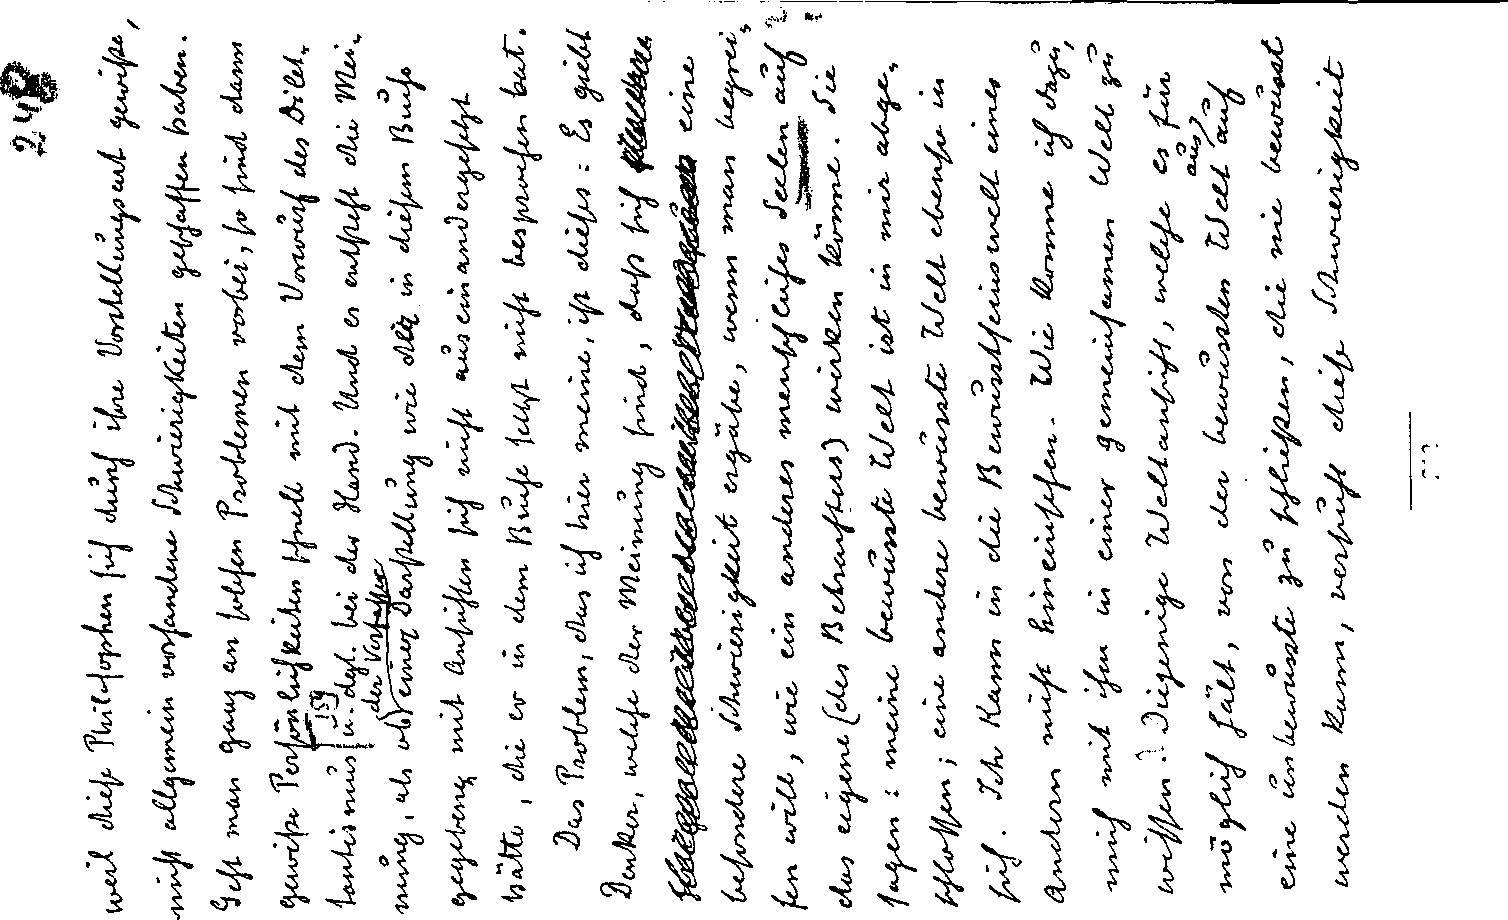 248
weil diese Philosophen sich durch ihre Vorstellungsart gewisse,
nicht allgemein vorhandene Schwierigkeiten geschaffen haben.
Geht man ganz an solchen Problemen vorbei, so sind dann
gewisse Persönlichkeiten schnell mit dem Vorwurf des Dilet-
tantismus u. dgl. bei der Hand. Und es entsteht die Mei-
159
der Verfasser
nung, als ob einer Darstellung wie der in diesem Buch
gegebenen mit Ansichten sich nicht auseinandergesetzt
hätte, die er in dem Buche selbst nicht besprochen hat.
Das Problem, das ich hier meine, ist dieses: Es giebt
Denker, welche der Meinung sind, dass sich
eine
besondere Schwierigkeit ergäbe, wenn man begrei-
fen will, wie ein anderes menschliches Seelen auf
das eigene (des Betrachters) wirken könne. Sie
sagen: meine bewusste Welt ist in mir abge-
schlossen; eine andere bewusste Welt ebenso in
sich. Ich kann in die Bewusstseinswelt eines
Andern nicht hineinsehen. Wie komme ich dazu,
mich mit ihm in einer gemeinsamen Welt zu
wissen? Diejenige Weltansicht, welche es für
möglich hält, von der bewussten Welt aus auf
eine unbewusste zu schließen, die nie bewusst
werden kann, versucht diese Schwierigkeit